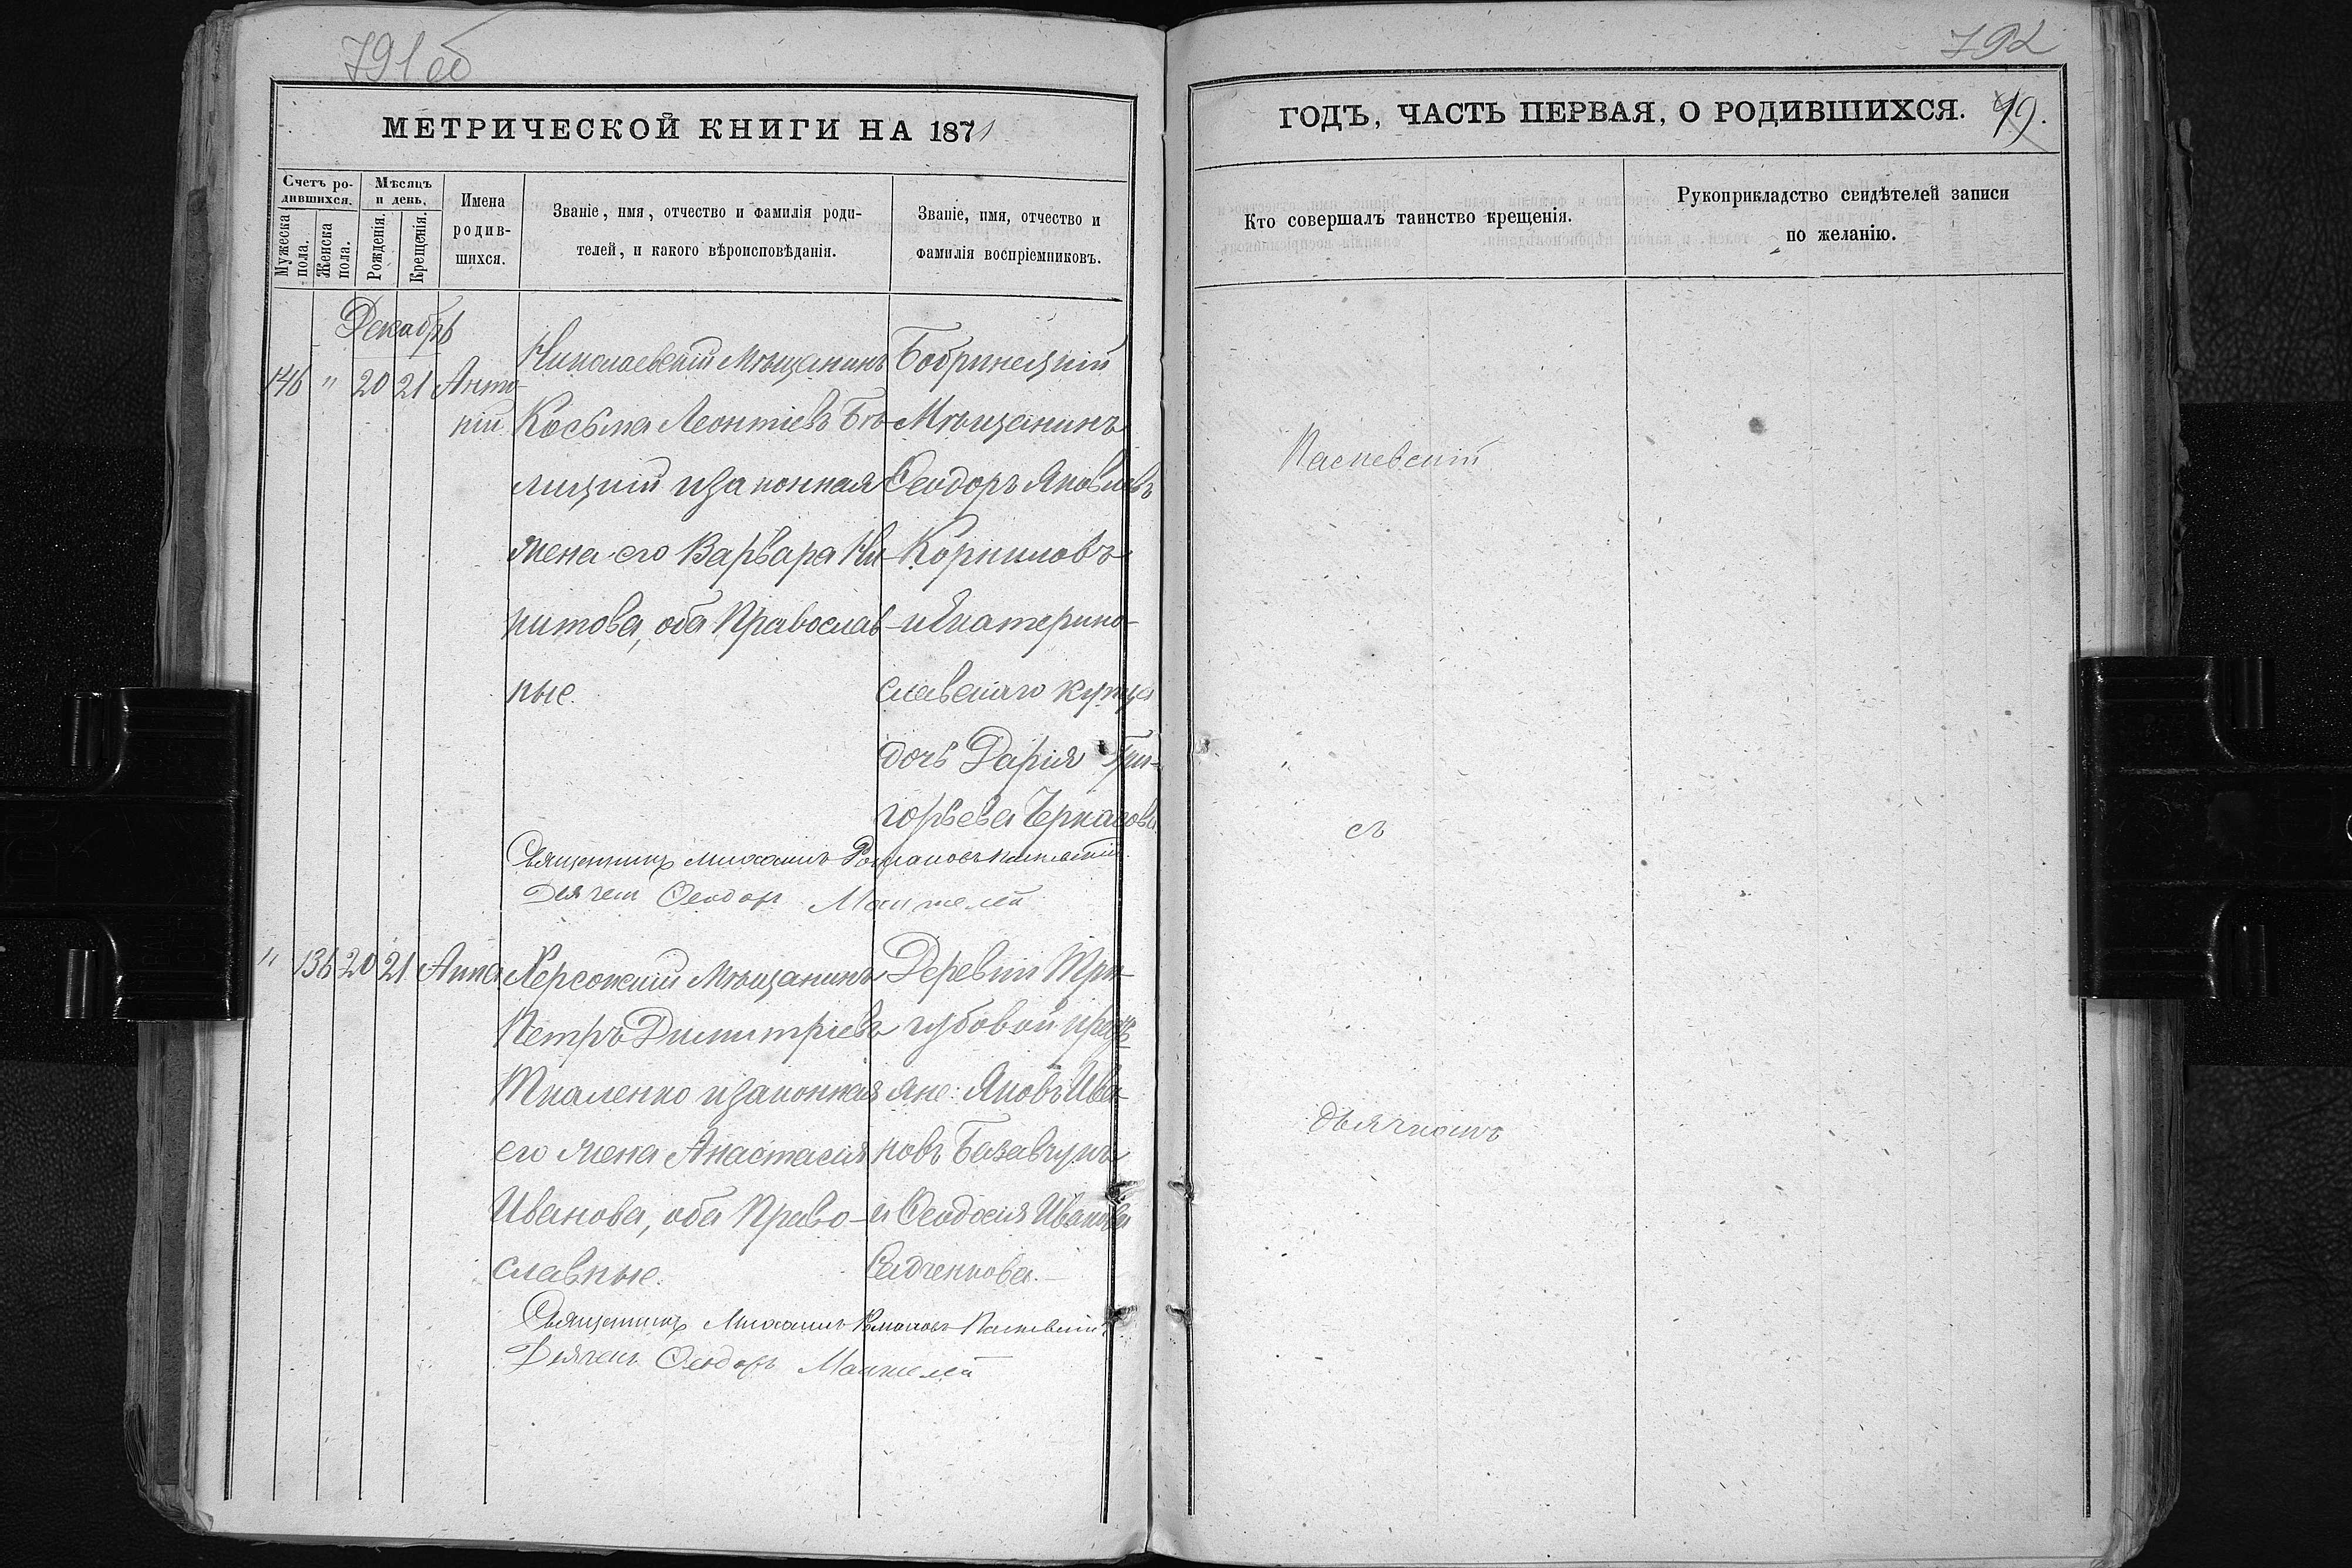 791 об
МЕТРИЧЕСКОЙ КНИГИ НА 1871
Счетъ ро-
дившихся.
Мужеска
пола.
Женска
пола.
Мѣсяцъ
и день.
Рожденія.
Крещенія.
Имена
родив-
шихся.
Званіе, имя, отчество и фамилія роди-
телей, и какого вѣроисповѣданія.
Званіе, имя, отчество и
фамилія воспріемниковъ.
Декабрь
146 " 20 21 Анто-
ній
Николаевскій Мѣщанинъ
Косьма Леонтіевъ Бѣ-
лицкій изаконная
жена его Варвара Ни-
китова, оба Православ-
ные.
Бобринецкій
Мѣщанинъ
Ѳеодоръ Яковлевъ
Корниловъ
и Екатерино-
славскаго купца
дочь Дарія Гри-
горьева Черкасова
Священникъ Михаилъ Паскевскій
Дьячекъ Ѳеодоръ
" 136 20 21 Анна
Херсонскій Мѣщанинъ
Петръ Димитріевъ
Ткаленко изаконная
его жена Анастасія
Иванова, оба Право-
славные.
Деревни Три-
губовой кресть
яне: Яковъ Ива-
новъ
и Ѳеодосія Иванова
Садченкова.
Священникъ Михаилъ Паскевскій
Дьячекъ Ѳеодоръ
792
ГОДЪ, ЧАСТЬ ПЕРВАЯ, О РОДИВШИХСЯ. 49.
Кто совершалъ таинство крещенія.
Рукоприкладство свидѣтелей записи
по желанію.
Паскевскій
съ
дьячкомъ